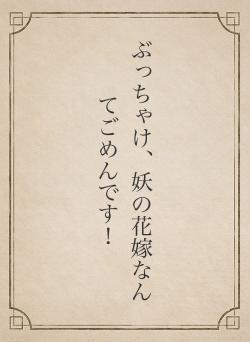 ぶっちゃけ、妖の花嫁なん
てごめんです！